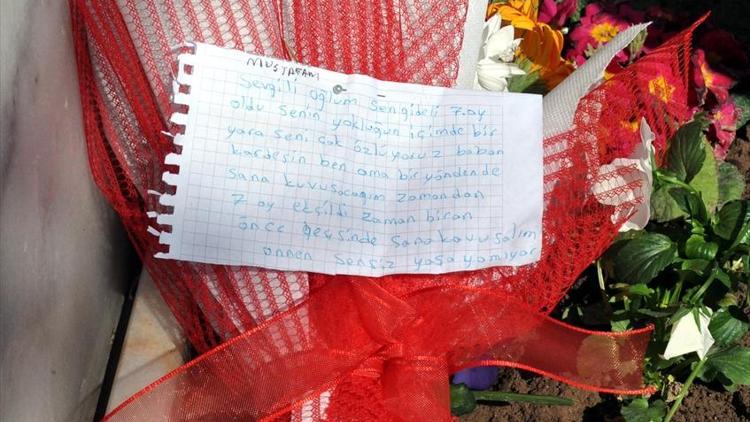 MUSTAFAM
Sevgili oğlum sen gideli 7.ay
oldu senin yokluğun içimde bir
yara seni çok özlüyoruz baban
kardeşin ben ama bir yönden de
sana kuvuşacağım zamandan
7 ay eksildi zaman biran
önce geçsinde sana kavuşalım
annen sensiz yaşayamıyor